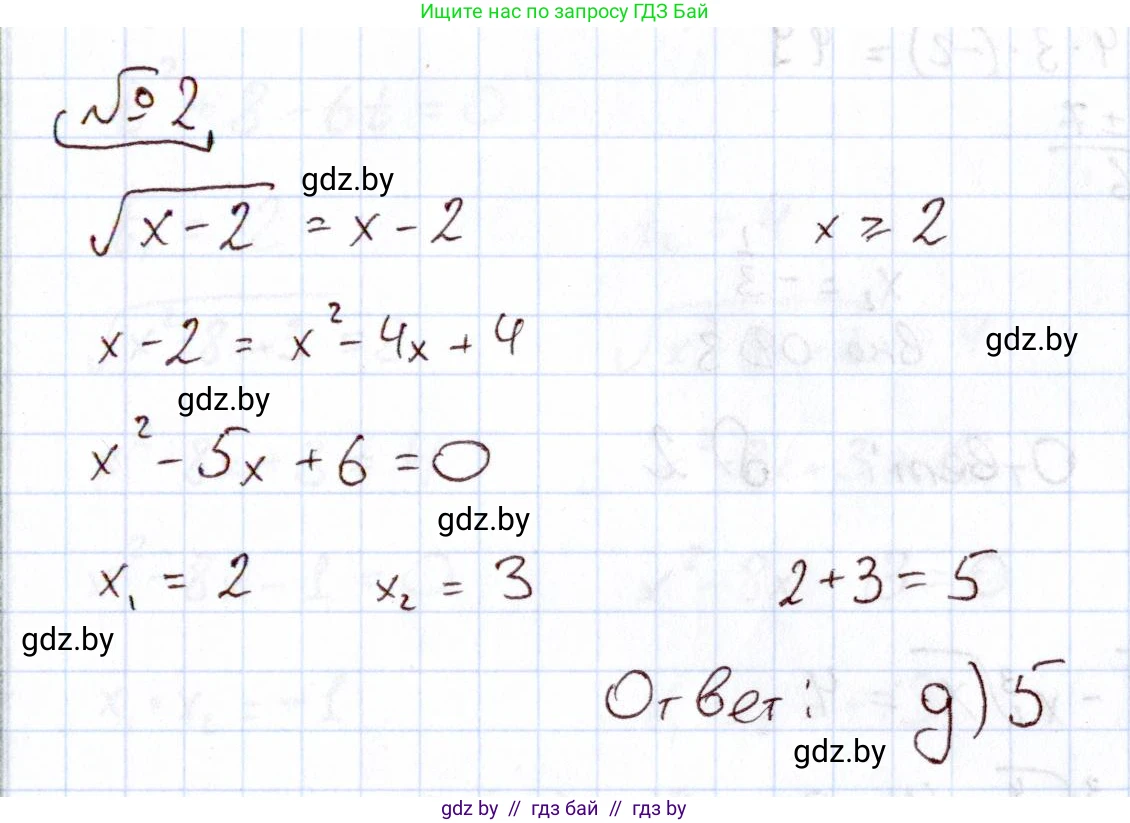 Ищите нас по запросу ГДЗ Бай
№ 2
gdz.by
√(x-2) = x-2 x ≥ 2
x-2 = x² - 4x + 4
gdz.by
gdz.by
x² - 5x + 6 = 0
gdz.by
x₁ = 2 x₂ = 3 2+3=5
gdz.by
Ответ: д) 5
gdz.by
gdz by // гдз бай // гдз by